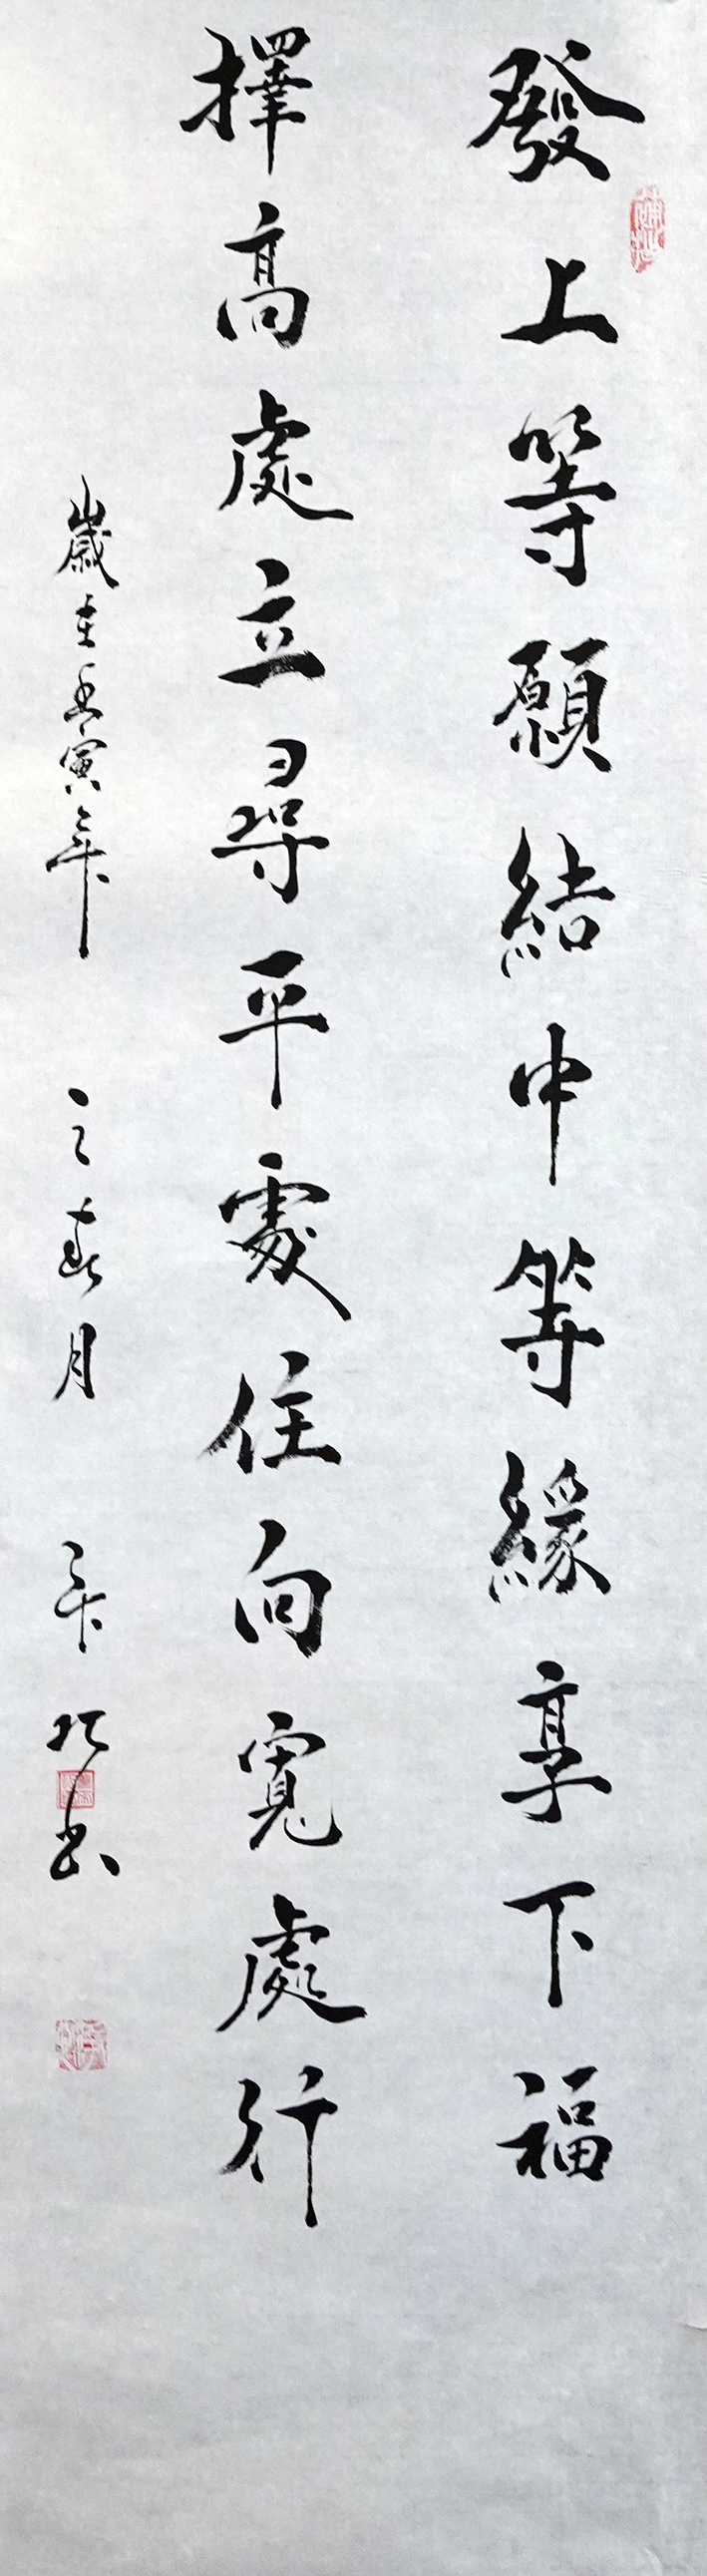 發上等願結中等緣享下福
擇高處立尋平處住向寬處行
歲在壬寅年之春月
書